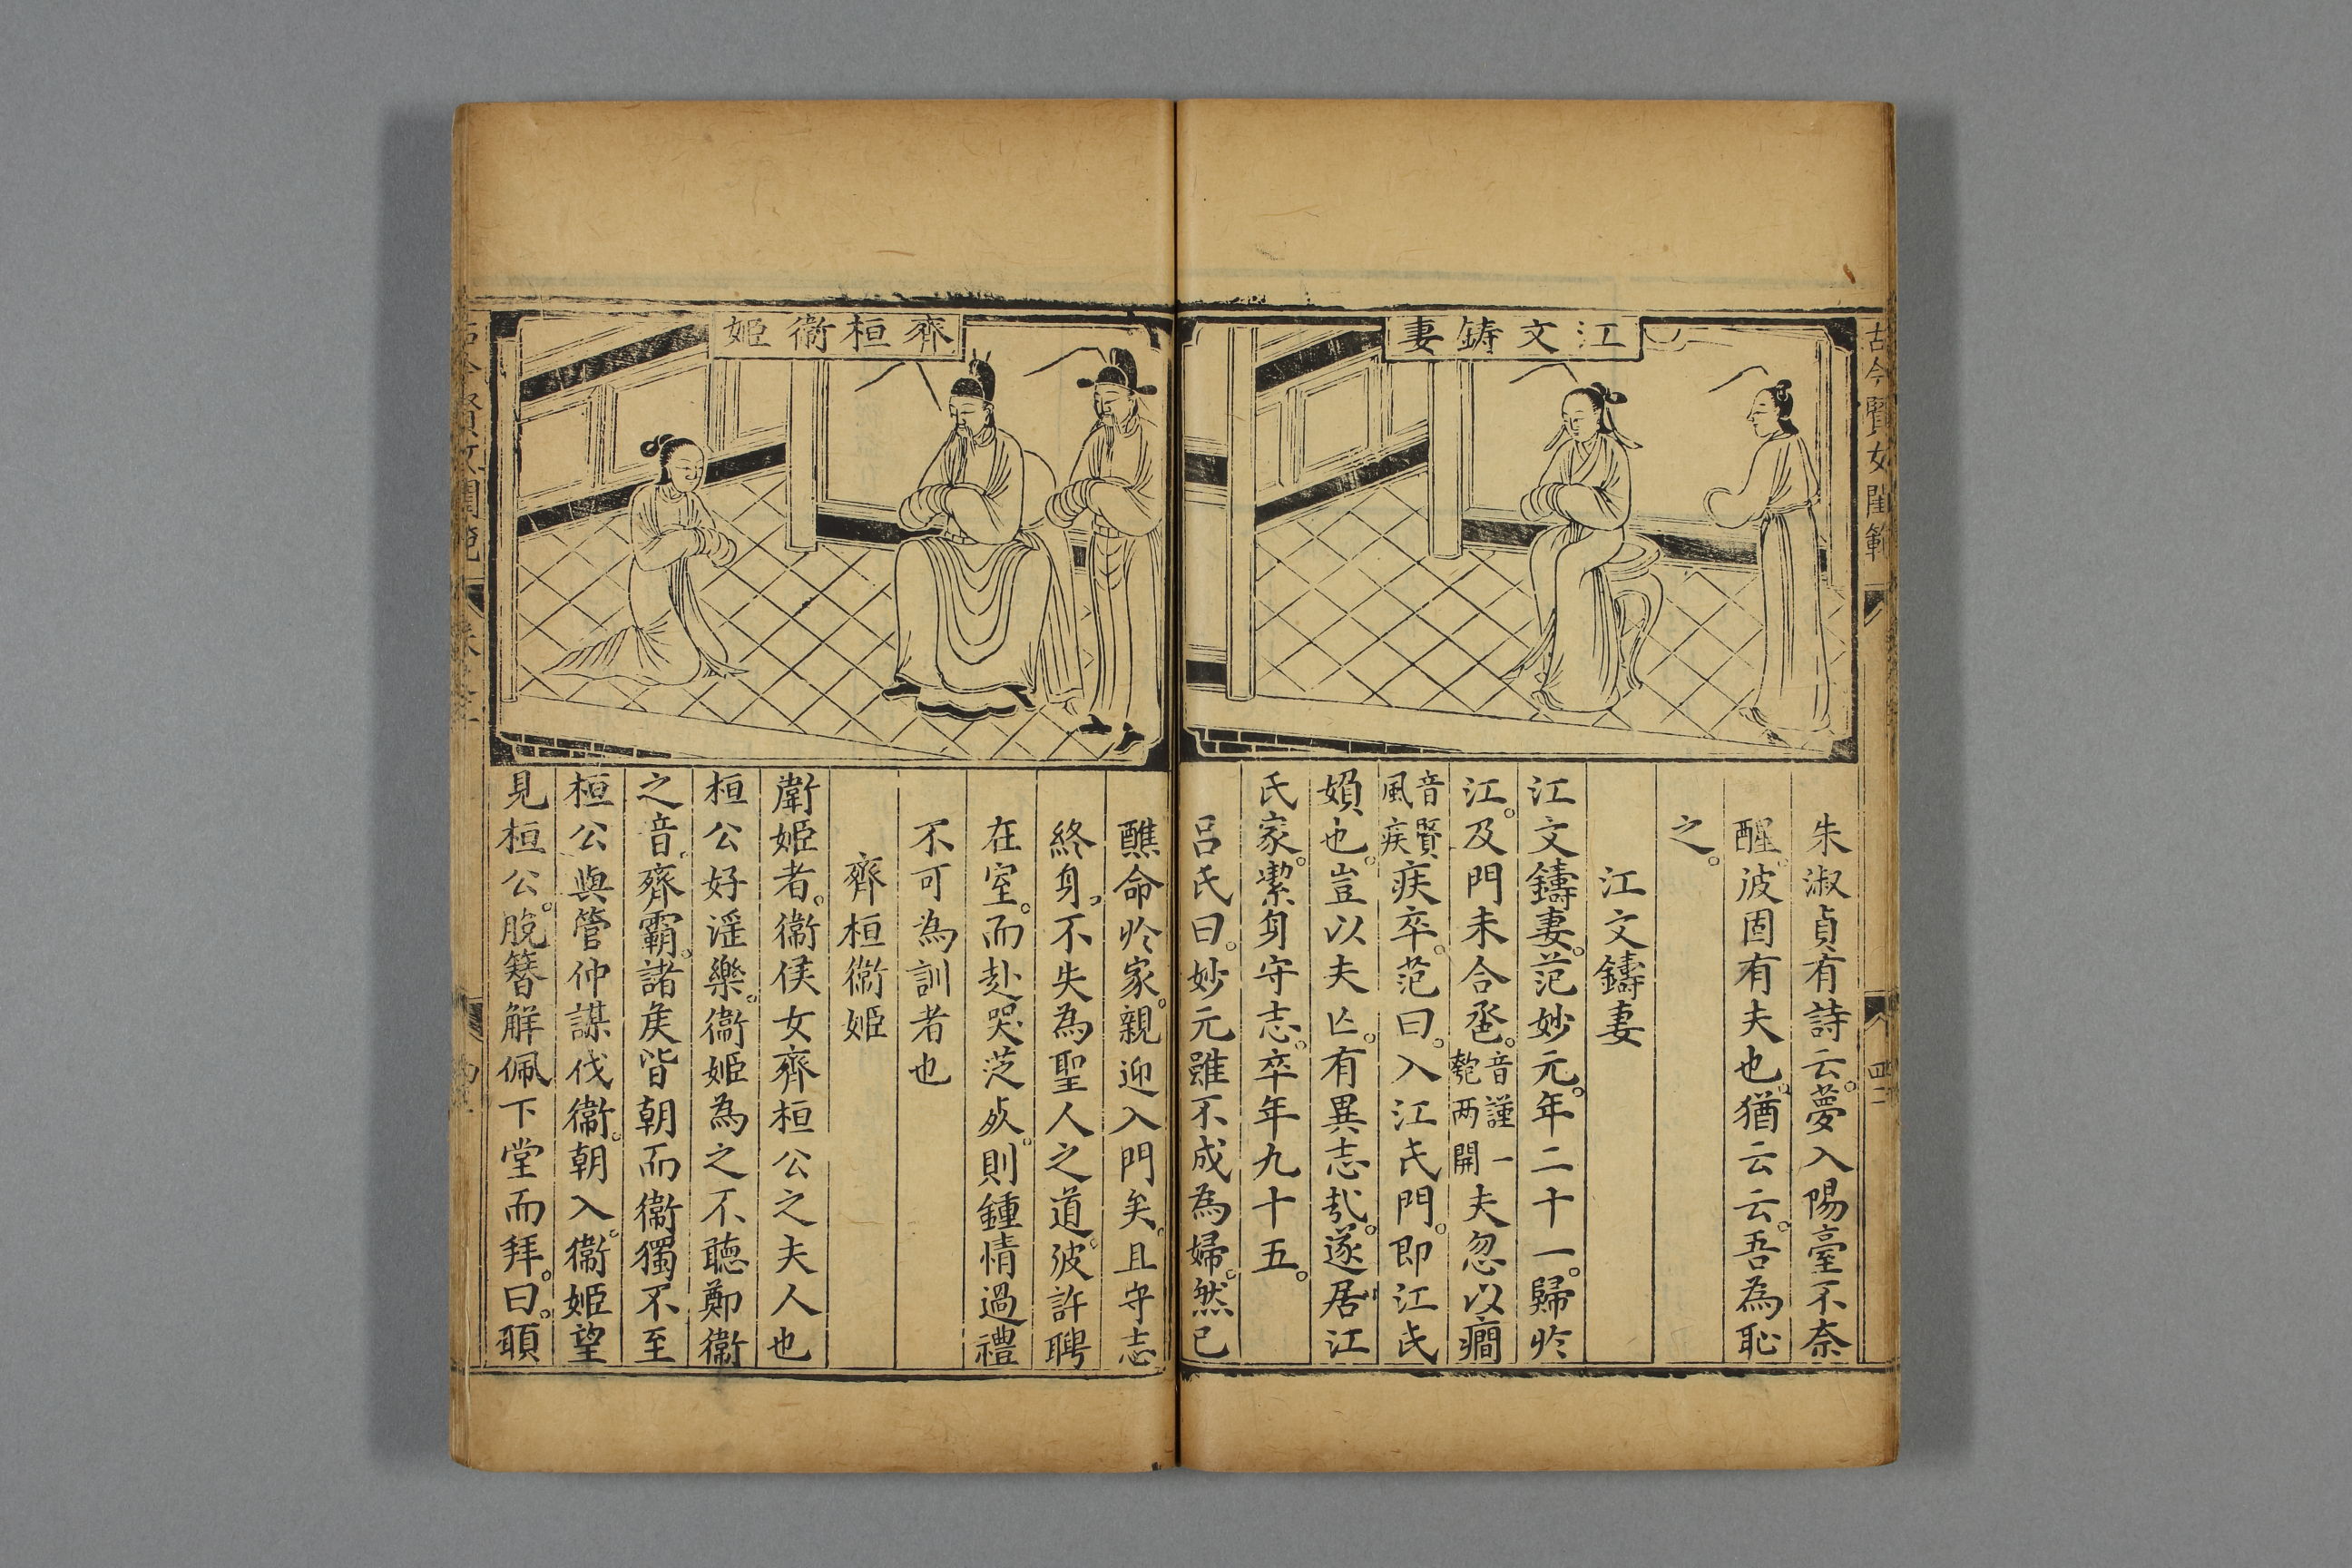 古今賢女閨範
四二
江文鋳妻
朱淑貞有詩云。夢入陽臺不奈
醒。彼固有夫也。猶云云。吾為恥
之。
江文鑄妻
江文鑄妻。范妙元。年二十一。歸於
江。及門未合巹。音謹一匏两開夫忽以癇
音賢風疾疾卒。范曰。入江氏門。即江氏
媍也。豈以夫亾。有異志㢤。遂居江
氏家。潔身守志。卒年九十五。
呂氏曰。妙元雖不成為婦。然已
齊桓衞姬
醮命於家。親迎入門矣。且守志
終身。不失為聖人之道。彼許聘
在室。而赴哭從死。則鍾情過禮
不可為訓者也
齊桓衞姬
衛姬者。衞侯女齊桓公之夫人也
桓公好淫樂。衞姬為之不聽鄭衞
之音。齊霸。諸矦皆朝而衞獨不至
桓公與管仲謀伐衞。朝入。衞姬望
見桓公。脫簪解佩下堂而拜。曰。願